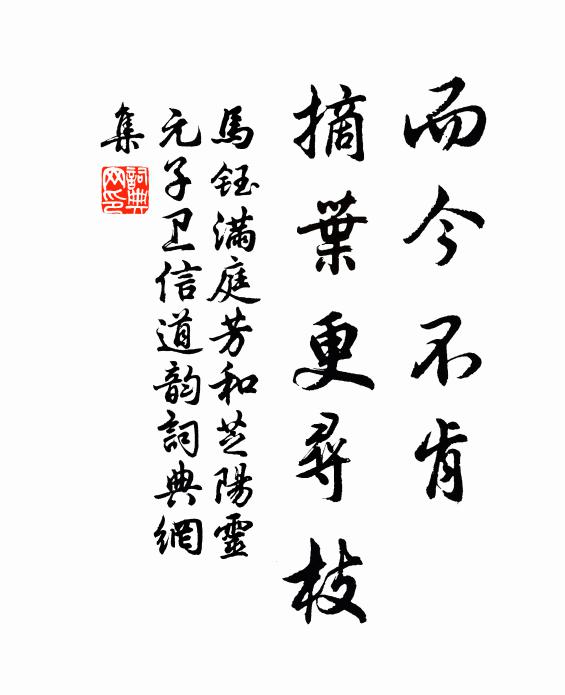 而今不肯
摘葉更尋枝
馬鈺滿庭芳和芝陽靈
元子卫信道韵詞典網
集
詞典网印